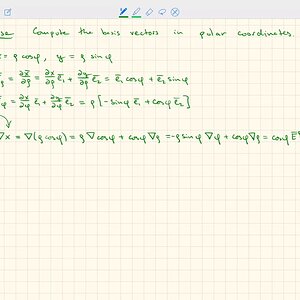 Compute the basis vectors in polar coordinates.
= ρ cosφ, y = ρ sinφ
= ∂x̄/∂ρ = ∂x/∂ρ ē₁ + ∂x/∂ρ ē₂ = ē₁ cosφ + ē₂ sinφ
φ = ∂x/∂φ ē₁ + ∂x/∂φ ē₂ = ρ [-sinφ ē₁ + cosφ ē₂]
∇x = ∇(ρ cosφ) = ρ ∇cosφ + cosφ ∇ρ = -ρ sinφ ∇φ + cosφ ∇ρ = cosφ